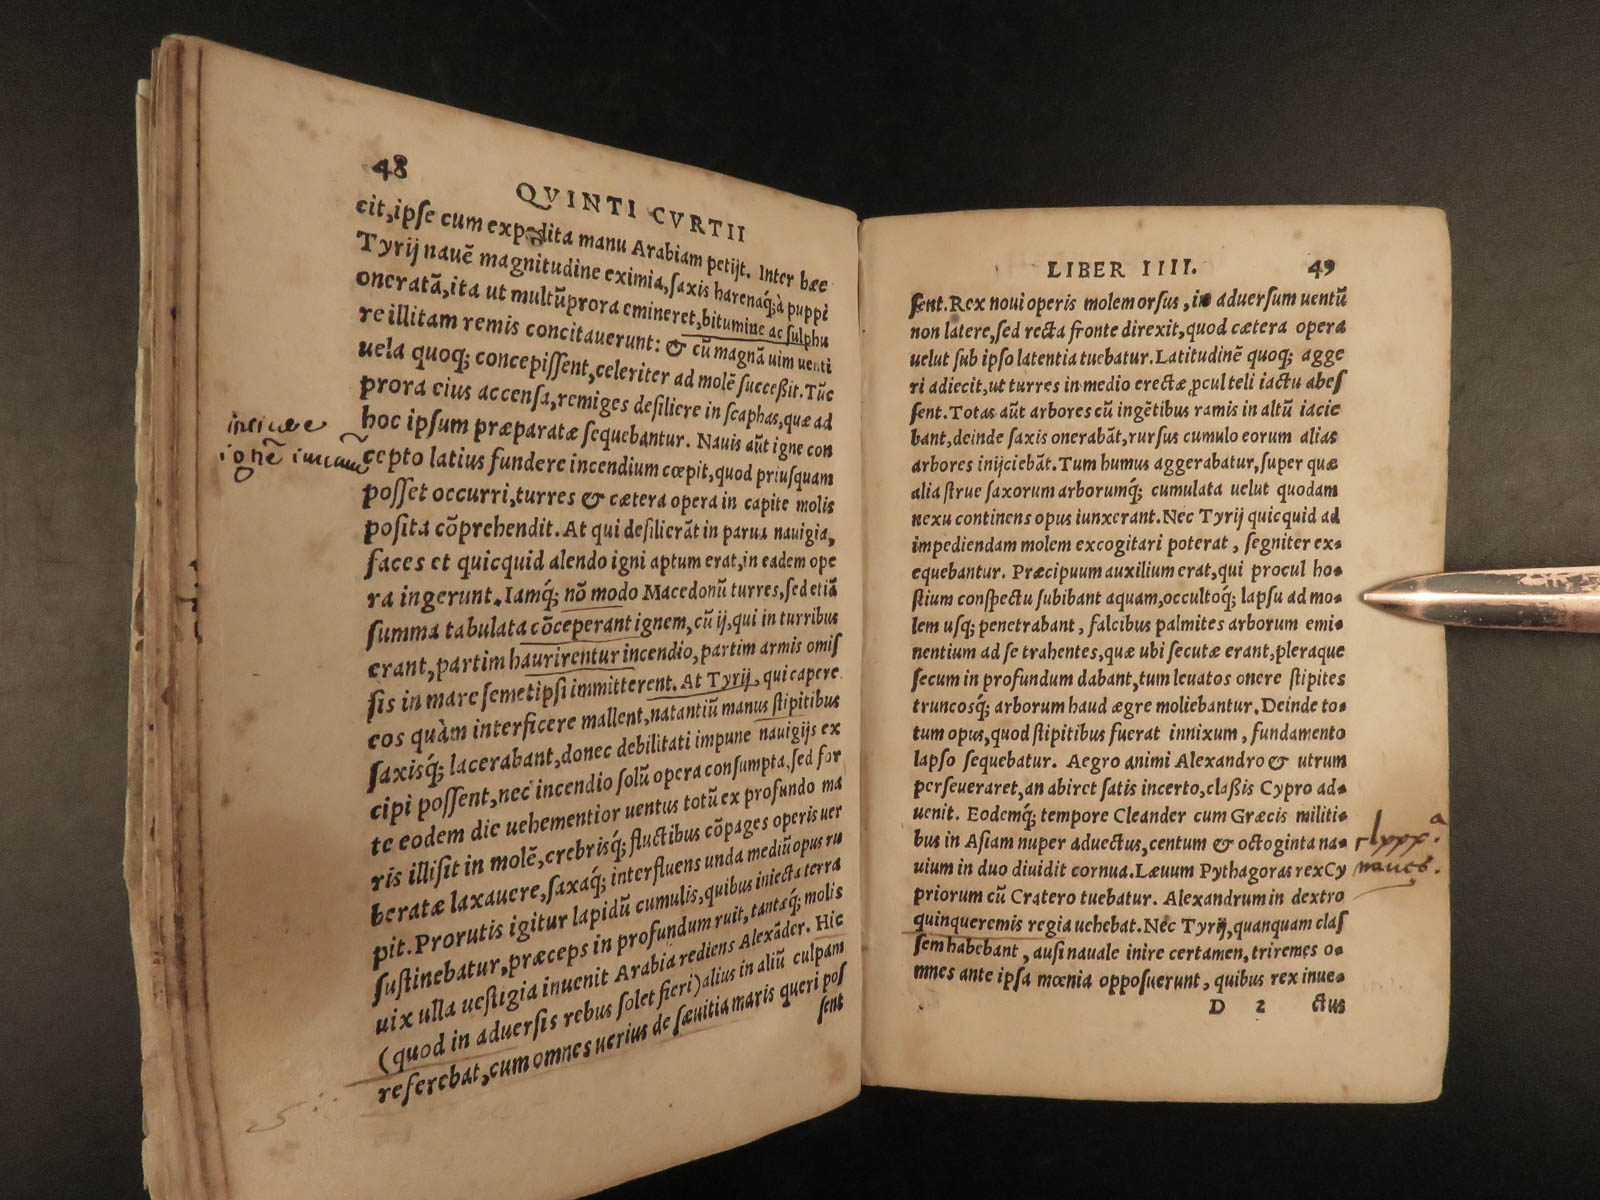 48
QVINTI CVRTII
cit, ipse cum expedita manu Arabiam petijt. Inter hæc
Tyrij nauẽ magnitudine eximia, saxis harenaq́; à puppi
oneratã, ita ut multũ prora emineret, bitumine ac sulphu
re illitam remis concitauerunt: & cũ magnã uim uenti
uela quoq; concepissent, celeriter ad molẽ succeßit. Tũc
prora eius accensa, remiges desiliere in scaphas, quæ ad
hoc ipsum præparatæ sequebantur. Nauis aũt igne con
cepto latius fundere incendium cœpit, quod priusquam
posset occurri, turres & cætera opera in capite molis
posita cõprehendit. At qui desilierãt in parua nauigia,
faces et quicquid alendo igni aptum erat, in eadem ope
ra ingerunt. Iamq́; nõ modo Macedonũ turres, sed etiã
summa tabulata cõceperant ignem, cũ ij, qui in turribus
erant, partim haurirentur incendio, partim armis omis
sis in mare semetipsi immitterent. At Tyrij, qui capere
eos quàm interficere mallent, natantiũ manus stipitibus
saxisq́; lacerabant, donec debilitati impune nauigijs ex
cipi possent, nec incendio solũ opera consumpta, sed for
te eodem die uehementior uentus totũ ex profundo ma
ris illisit in molẽ, crebrisq́; fluctibus cõpages operis uer
beratæ laxauere, saxaq́; interfluens unda mediũ opus ru
pit. Prorutis igitur lapidũ cumulis, quibus iniecta terra
sustinebatur, præceps in profundum ruit, tantæq́; molis
uix ulla uestigia inuenit Arabia rediens Alexãder. Hic
(quod in aduersis rebus solet fieri) alius in aliũ culpam
referebat, cum omnes uerius de sæuitia maris queri pos
sent
ignẽ
25
LIBER IIII.
49
sent. Rex noui operis molem orsus, in aduersum uentũ
non latere, sed recta fronte direxit, quod cætera opera
uelut sub ipso latentia tuebatur. Latitudinẽ quoq; agge
ri adiecit, ut turres in medio erectæ ꝓcul teli iactu abes
sent. Totas aũt arbores cũ ingẽtibus ramis in altũ iacie
bant, deinde saxis onerabãt, rursus cumulo eorum alias
arbores inijciebãt. Tum humus aggerabatur, super quæ
alia strue saxorum arborumq́; cumulata uelut quodam
nexu continens opus iunxerant. Nec Tyrij quicquid ad
impediendam molem excogitari poterat, segniter ex-
equebantur. Præcipuum auxilium erat, qui procul ho-
stium conspectu subibant aquam, occultoq́; lapsu ad mo-
lem usq; penetrabant, falcibus palmites arborum emi-
nentium ad se trahentes, quæ ubi secutæ erant, pleraque
secum in profundum dabant, tum leuatos onere stipites
truncosq́; arborum haud ægre moliebantur. Deinde to-
tum opus, quod stipitibus fuerat innixum, fundamento
lapso sequebatur. Aegro animi Alexandro & utrum
perseueraret, an abiret satis incerto, claßis Cypro ad-
uenit. Eodemq́; tempore Cleander cum Græcis militi-
bus in Asiam nuper aduectus, centum & octoginta na-
uium in duo diuidit cornua. Læuum Pythagoras rex Cy
priorum cũ Cratero tuebatur. Alexandrum in dextro
quinqueremis regia uehebat. Nec Tyrij, quanquam clas
sem habebant, ausi nauale inire certamen, triremes o-
mnes ante ipsa mœnia opposuerunt, quibus rex inue-
D 2 ctus
clxxx.a
naues.